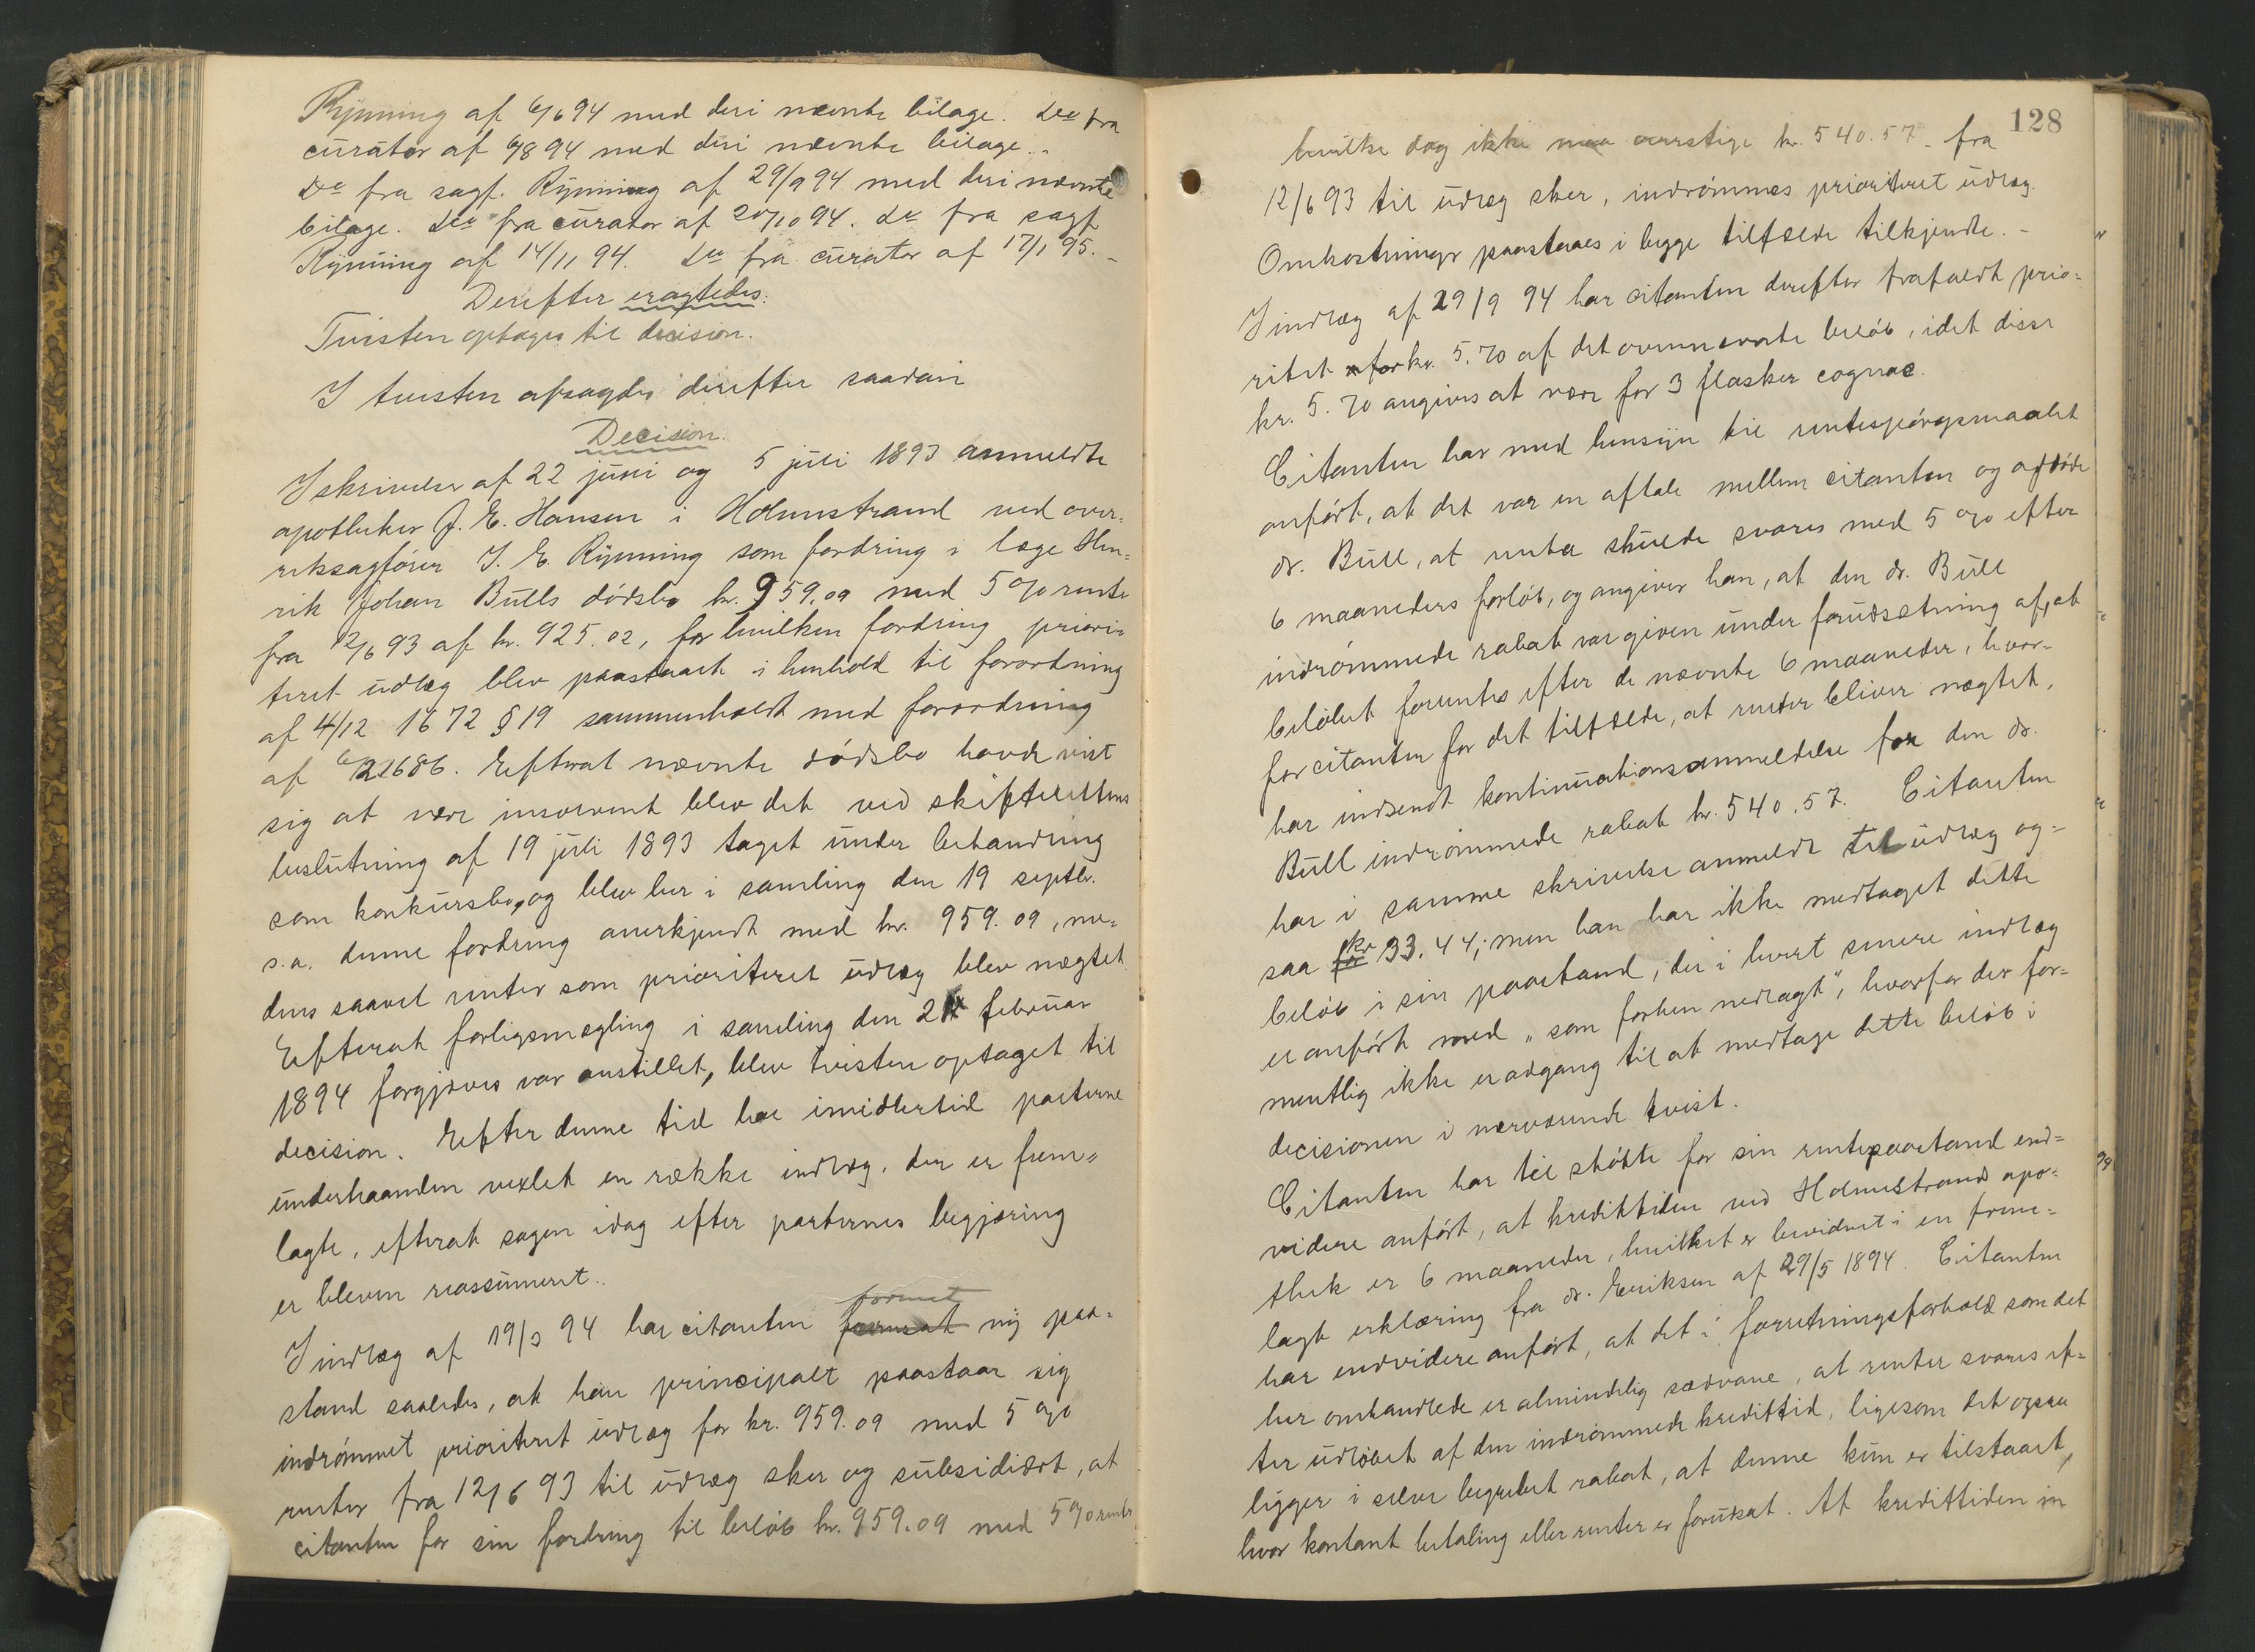 Rynning af 6/6 94 med deri nævnte bilage. Do fra
curator af 6/8 94 med deri nævnte bilage. -
Do fra sagf. Rynning af 29/9 94 med deri nævnte
bilage. Do fra curator af 20/10 94. Do fra sagf
Rynning af 14/11 94. Do fra curator af 17/1 95. -
Derefter eragtedes:
Tvisten optages til decision.
I tvisten afsagdes derefter saadan
Decision.
I skrivelser af 22 juni og 5 juli 1893 anmeldte
apotheker J. E. Hansen i Holmestrand ved over-
retssagfører J. E. Rynning som fordring i læge Hen-
rik Johan Bulls dødsbo kr. 959.09 med 5 % rente
fra 12/6 93 af kr. 925.02, for hvilken fordring priori-
teret udlæg blev paastaaet i henhold til forordning
af 4/12 1672 § 19 sammenholdt med forordning
af 1686. Efterat nævnte dødsbo havde vist
sig at være insolvent blev det ved skifterettens
beslutning af 19 juli 1893 taget under behandling
som konkursbo, og blev her i samling den 19 septbr.
s.a. denne fordring anerkjendt med kr. 959.09, me-
dens saavel renter som prioriteret udlæg blev nægtet.
Efterat forligsmægling i samling den februar
1894 forgjæves var anstillet, blev tvisten optaget til
decision. Efter denne tid har imidlertid parterne
underhaanden vexlet en række indlæg, der er frem-
lagte, efterat sagen idag efter parternes begjæring
er bleven reassumeret..
I indlæg af 19/3 94 har citanten formet ny paa-
stand saaledes, at han principalt paastaar sig
indrømmet prioriteret udlæg for kr. 959.09 med 5 %
renter fra 12/6 93 til udlæg sker og subsidiært, at
citanten for sin fordring til beløb kr. 959.09 med 5 % rente
128
hvilke dog ikke maa overstige kr. 540.57 - fra
12/6 93 til udlæg sker, indrømmes prioriteret udlæg.
Omkostninger paastaaes i begge tilfælde tilkjendte. -
I indlæg af 29/9 94 har citanten derefter frafaldt prio-
ritet for kr. 5.70 af det ovennævnte beløb, idet disse
kr. 5.70 angives at være for 3 flasker cognac.
Citanten har med hensyn til rentespørgsmaalet
anført, at det var en aftale mellem citanten og afdøde
dr. Bull, at rente skulde svares med 5 % efter
6 maaneders forløb, og angiver han, at den dr. Bull
indrømmede rabat var given under forudsætning af, at
beløbet forrentes efter de nævnte 6 maaneder, hvor-
for citanten for det tilfælde, at renter bliver nægtet,
har indsendt kontinuationsanmeldelse for den dr.
Bull indrømmede rabat kr. 540.57. Citanten
har i samme skrivelse anmeldt til udlæg og-
saa kr 33.44; men han har ikke medtaget dette
beløb i sin paastand, der i hvert senere indlæg
er anført med „som forhen nedlagt“, hvorfor der for-
mentlig ikke er adgang til at medtage dette beløb i
decisionen i nærværende tvist.
Citanten har til støtte for sin rentepaastand end-
videre anført, at kredittiden ved Holmestrands apo-
thek er 6 maaneder, hvilket er bevidnet i en frem-
lagt erklæring fra dr. Eriksen af 29/5 1894. Citanten
har endvidere anført, at det i forretningsforhold som det
her omhandlede er almindelig sædvane, at renter svares ef-
ter udløbet af den indrømmede kredittid, ligesom det ogsaa
ligger i selve begrebet rabat, at denne kun er tilstaaet,
hvor kontant betaling eller renter er forudsat. At kredittiden